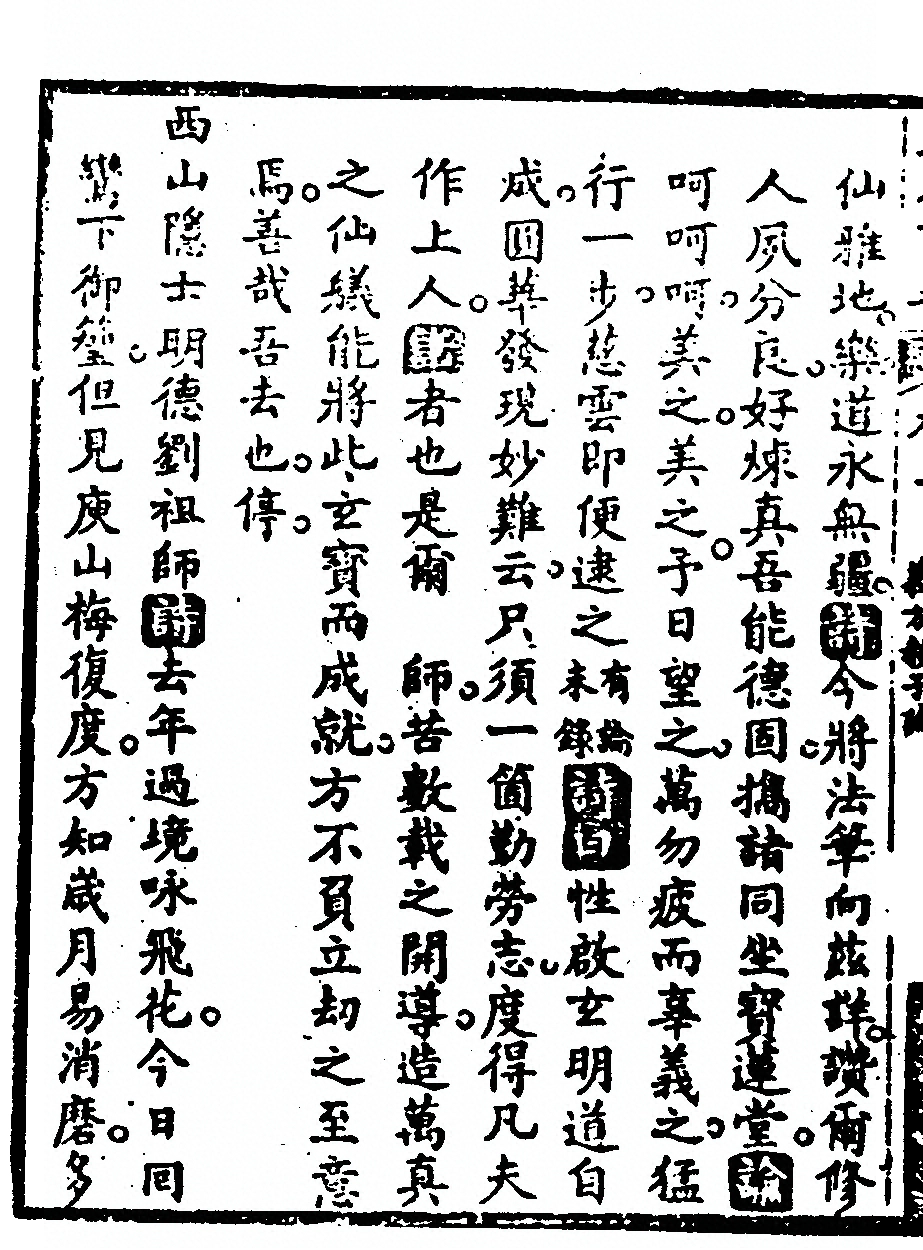 仙雅地樂道永無疆詩今將法筆向茲詳讚爾修
人夙分良好煉真吾能德固攜諸同坐寶蓮堂諭
呵呵呵美之美之予日望之萬勿疲而辜義之猛
行一步慈雲即便逮之有諭未錄性啟玄明道自
成圓華發現妙難云只須一箇勤勞志度得凡夫
作上人話者也是爾師苦數載之開導造萬真
之仙䑓能將此玄寶而成就方不負立刼之至意
焉善哉吾去也停
西山隱士明德劉祖師詩去年過境咏飛花今日囘
鸞下御鑾但見庾山梅復度方知歲月易消磨多